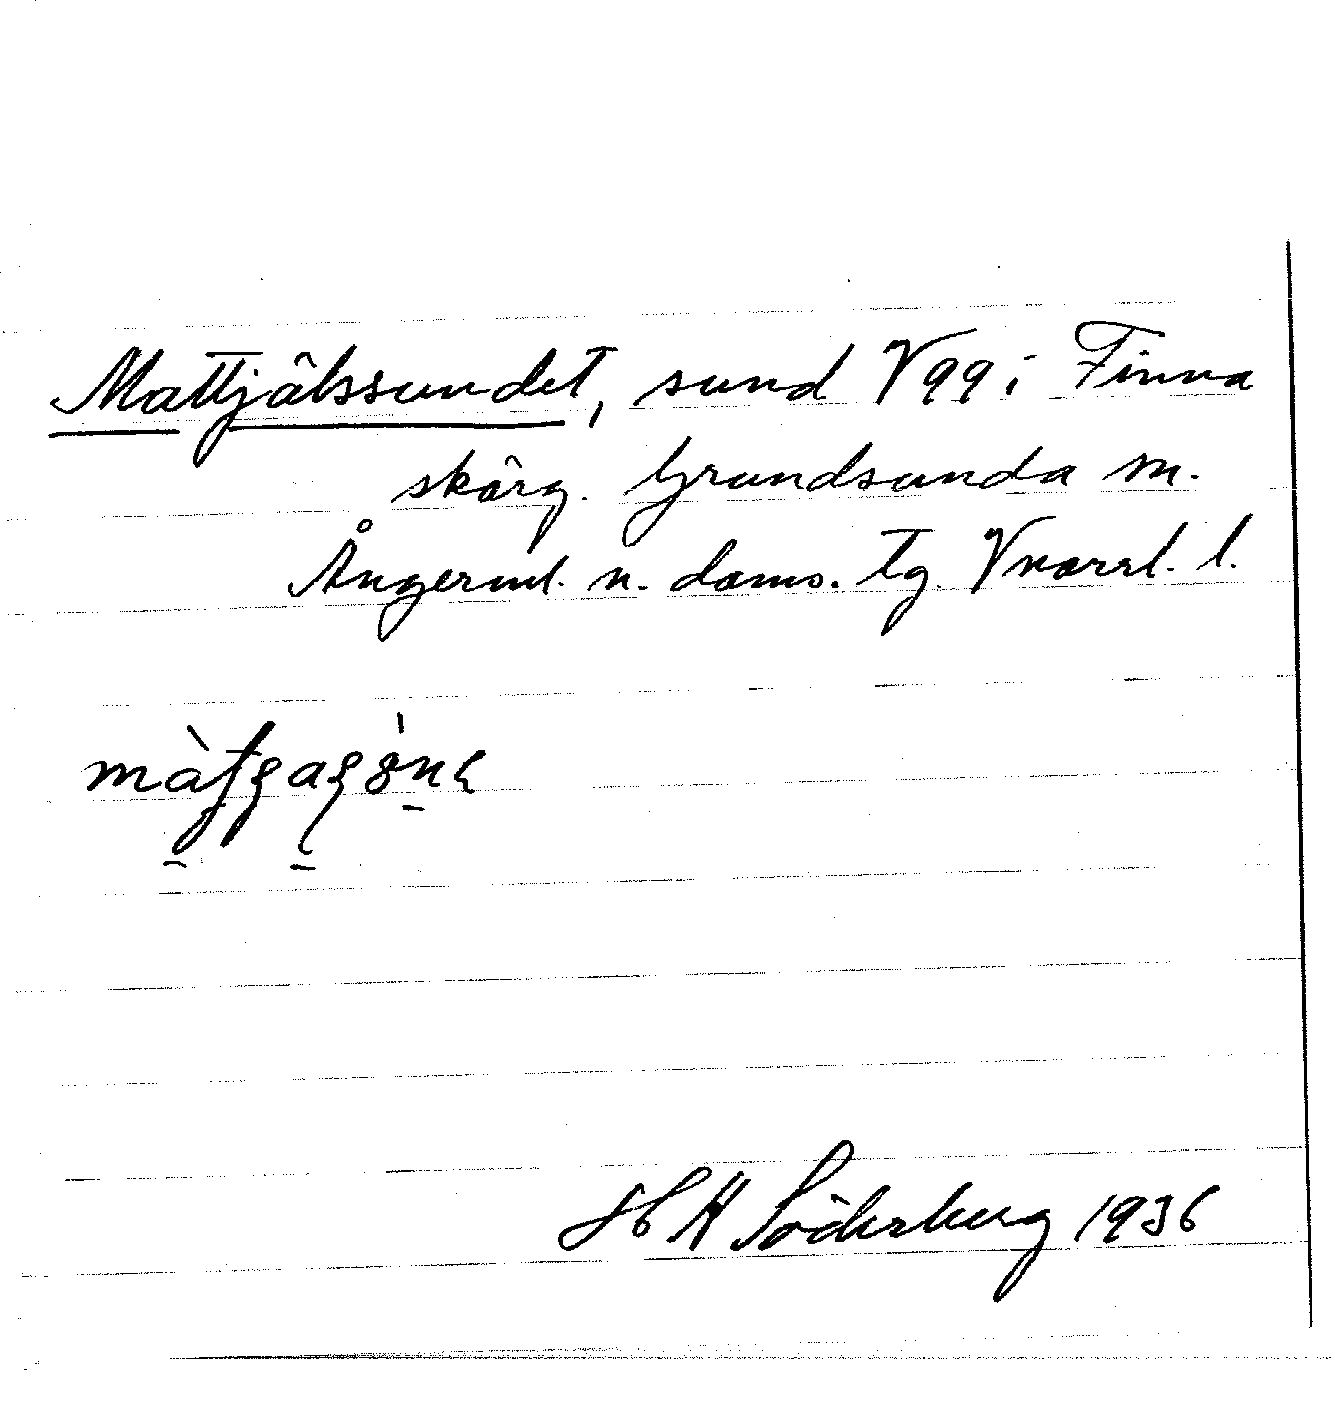 Mattjälssundet, sund V 99 i Finna
skärg. Grundsunda sn.
Ångerml. n. doms. tg. Vnorrl. l.
H H Söderberg 1936